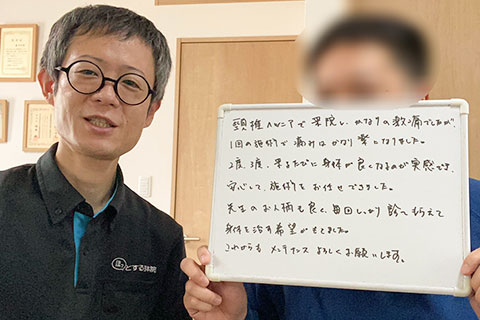 頚椎ヘルニアで来院し、かなりの激痛でしたが、
1回の施術で痛みはかなり楽になりました。
2度、3度、来るたびに身体が良くなるのが実感でき、
安心して、施術をお任せできました。
先生のお人柄も良く、毎回しっかり診てもらえて
身体を治す希望がもてました。
これからもメンテナンスよろしくお願いします。
ほっとする整体院